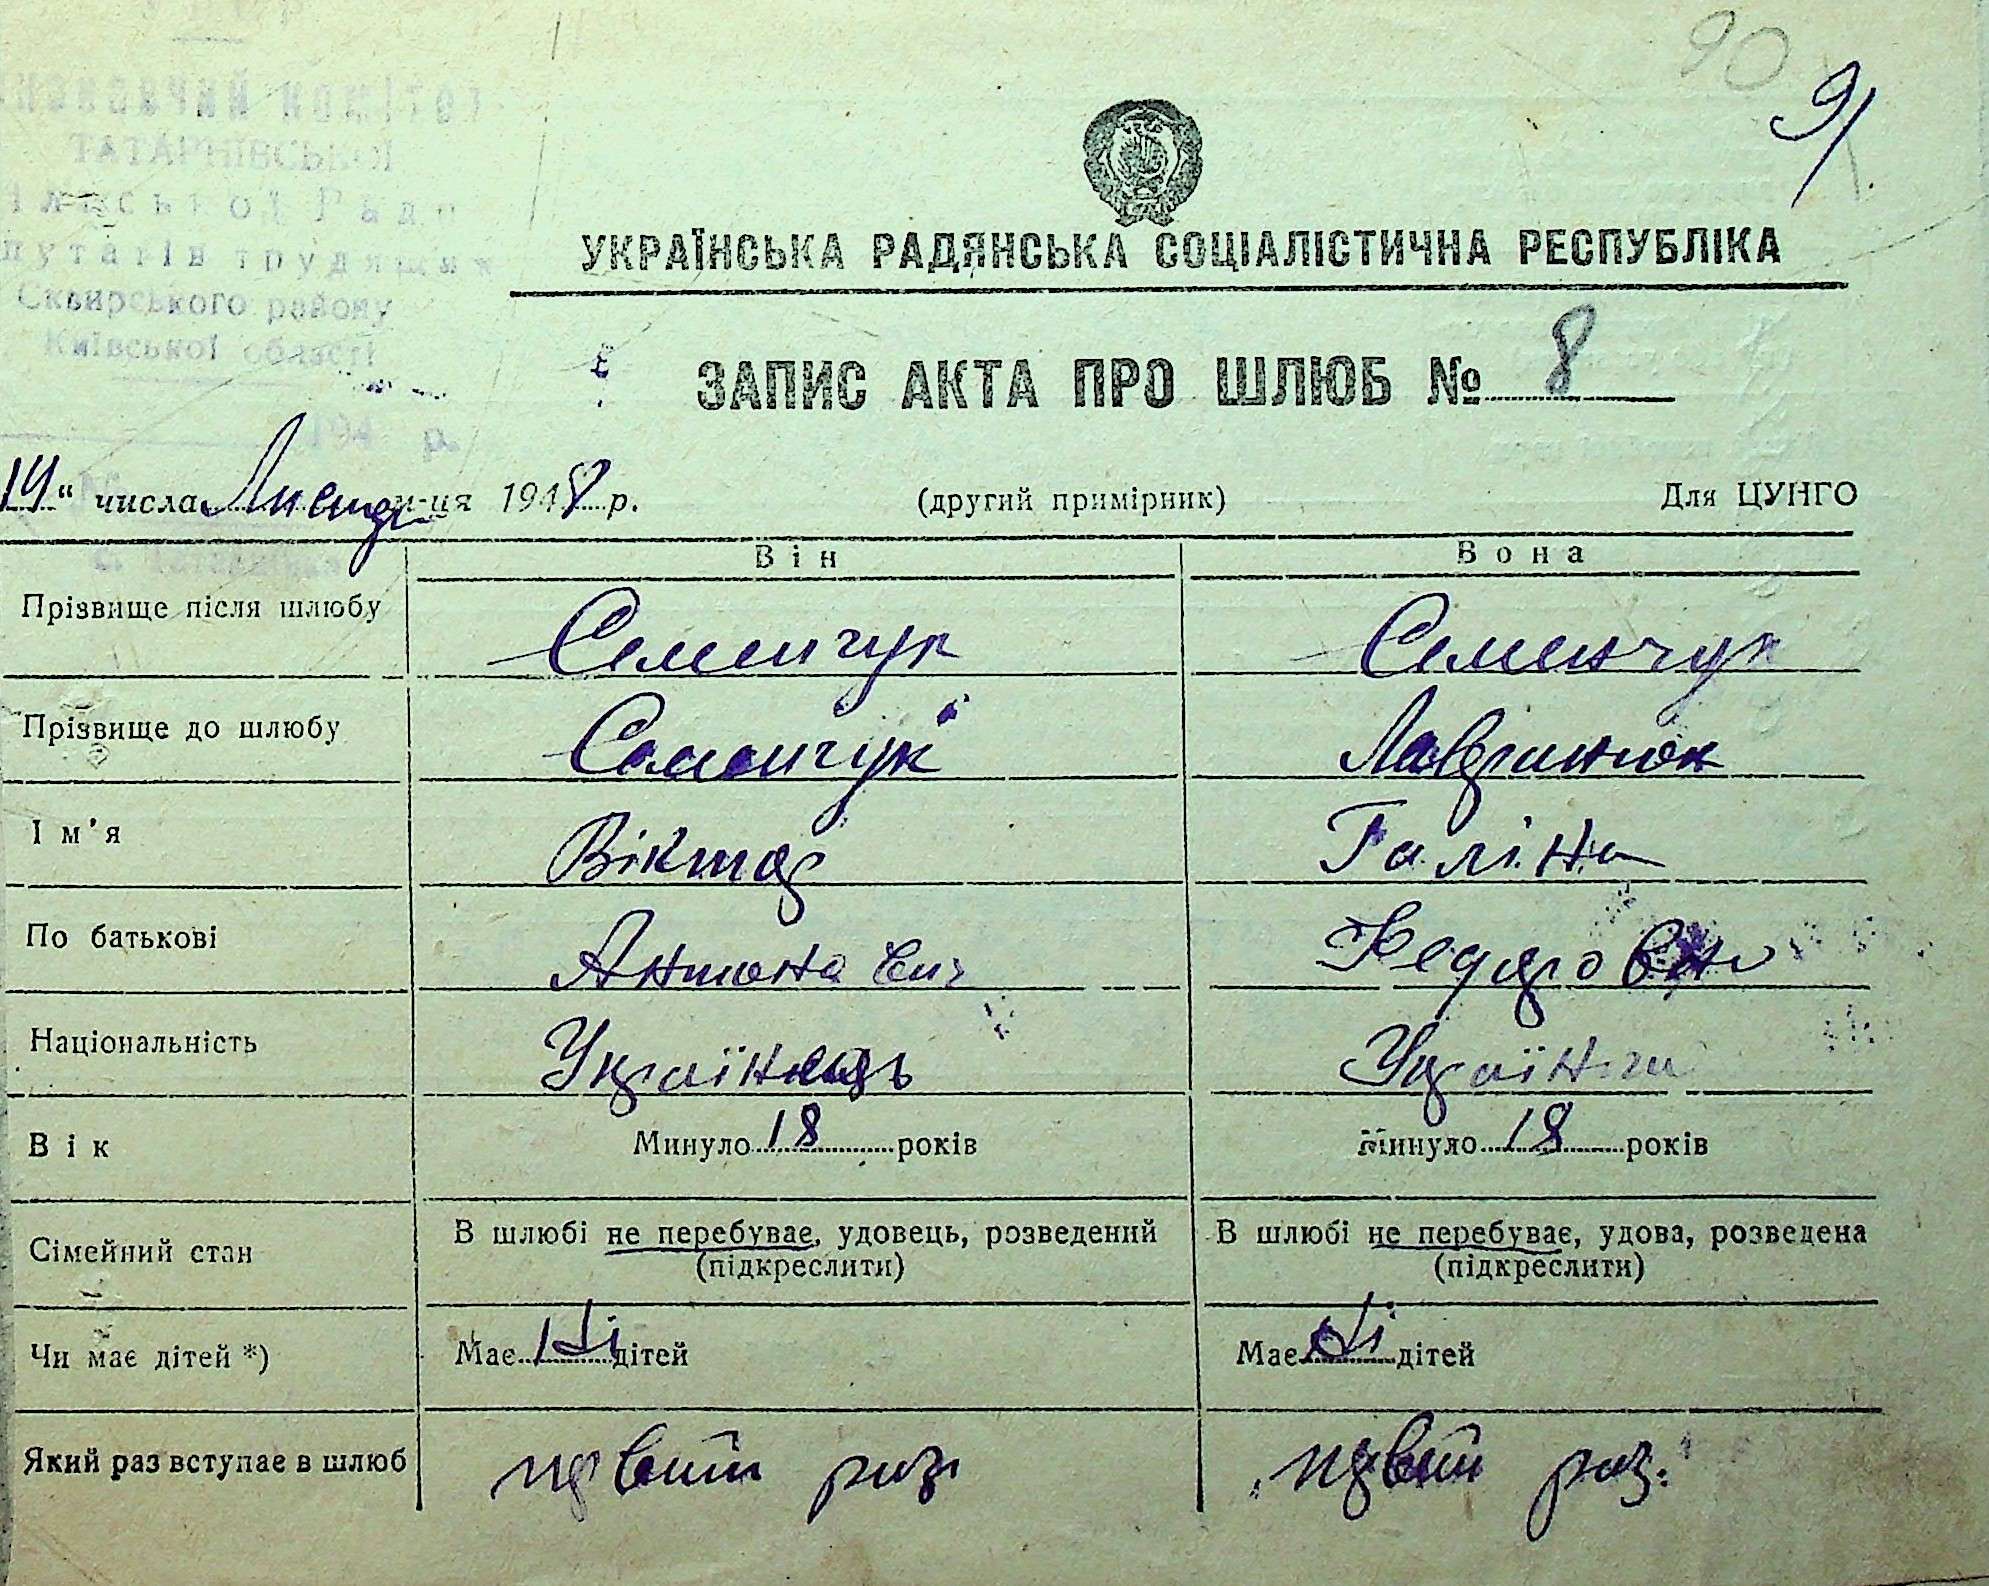 90
91
ТАТАРИНІВСЬКОЇ
Сквирського району
Київської області
УКРАЇНСЬКА РАДЯНСЬКА СОЦІАЛІСТИЧНА РЕСПУБЛІКА
ЗАПИС АКТА ПРО ШЛЮБ № 8
194 р.
14 " числа Листопа м-ця 1948 р. (другий примірник) Для ЦУНГО
Він Вона
Прізвище після шлюбу Семенчук Семенчук
Прізвище до шлюбу Семенчук Лавринюк
Ім'я Віктор Галіна
По батькові Антонович Федоровна
Національність Українець Українка
Вік Минуло 18 років Минуло 18 років
Сімейний стан В шлюбі не перебуває, удовець, розведений В шлюбі не перебуває, удова, розведена
(підкреслити) (підкреслити)
Чи має дітей *) Має Ні дітей Має Ні дітей
Який раз вступає в шлюб первий раз первий раз.